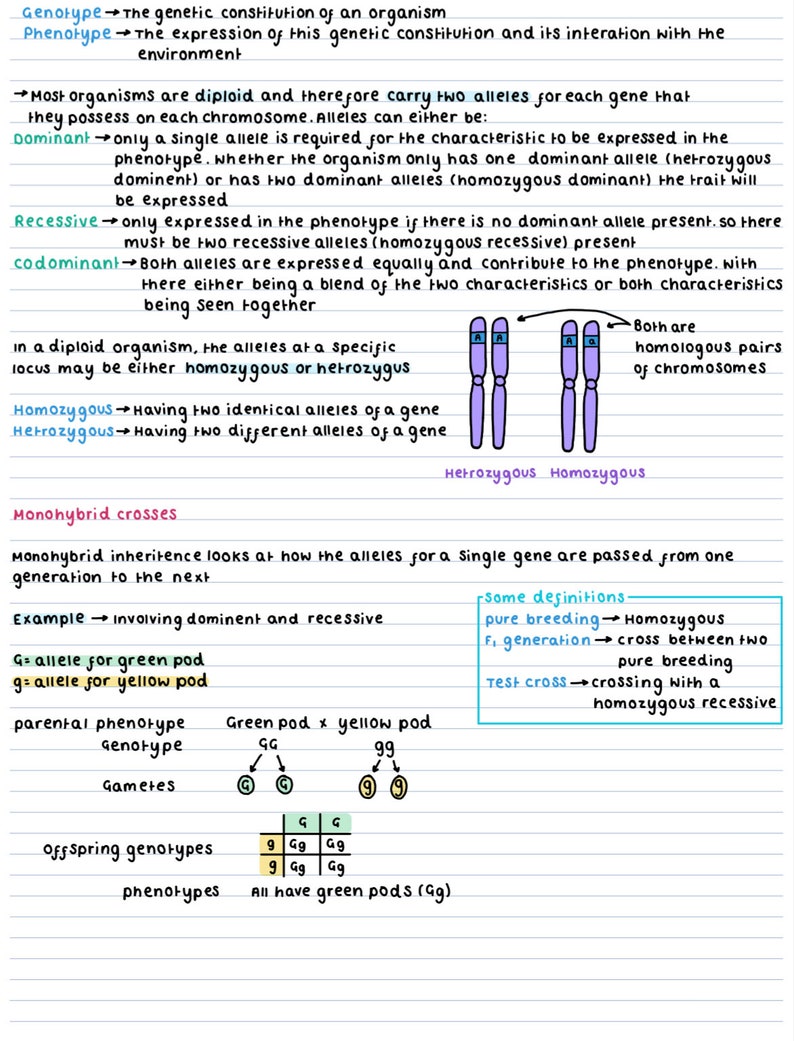 Genotype → The genetic constitution of an organism
Phenotype → The expression of this genetic constitution and its interation with the
environment
→ Most organisms are diploid and therefore carry two alleles for each gene that
they possess on each chromosome. Alleles can either be:
Dominant → only a single allele is required for the characteristic to be expressed in the
phenotype. Whether the organism only has one dominant allele (hetrozygous
dominent) or has two dominant alleles (homozygous dominant) the trait will
be expressed
Recessive → only expressed in the phenotype if there is no dominant allele present. so there
must be two recessive alleles (homozygous recessive) present
codominant → Both alleles are expressed equally and contribute to the phenotype. With
there either being a blend of the two characteristics or both characteristics
being seen together
In a diploid organism, the alleles at a specific
locus may be either homozygous or hetrozygus
Homozygous → Having two identical alleles of a gene
Hetrozygous → Having two different alleles of a gene
A A A a
Both are
homologous pairs
of chromosomes
Hetrozygous Homozygous
Monohybrid crosses
Monohybrid inheritence looks at how the alleles for a single gene are passed from one
generation to the next
Example → Involving dominent and recessive
G = allele for green pod
g = allele for yellow pod
some definitions
pure breeding → Homozygous
F₁ generation → cross between two
pure breeding
Test cross → crossing with a
homozygous recessive
parental phenotype Green pod x yellow pod
Genotype GG gg
Gametes G G g g
G G
g Gg Gg
Offspring genotypes
g Gg Gg
phenotypes All have green pods (Gg)